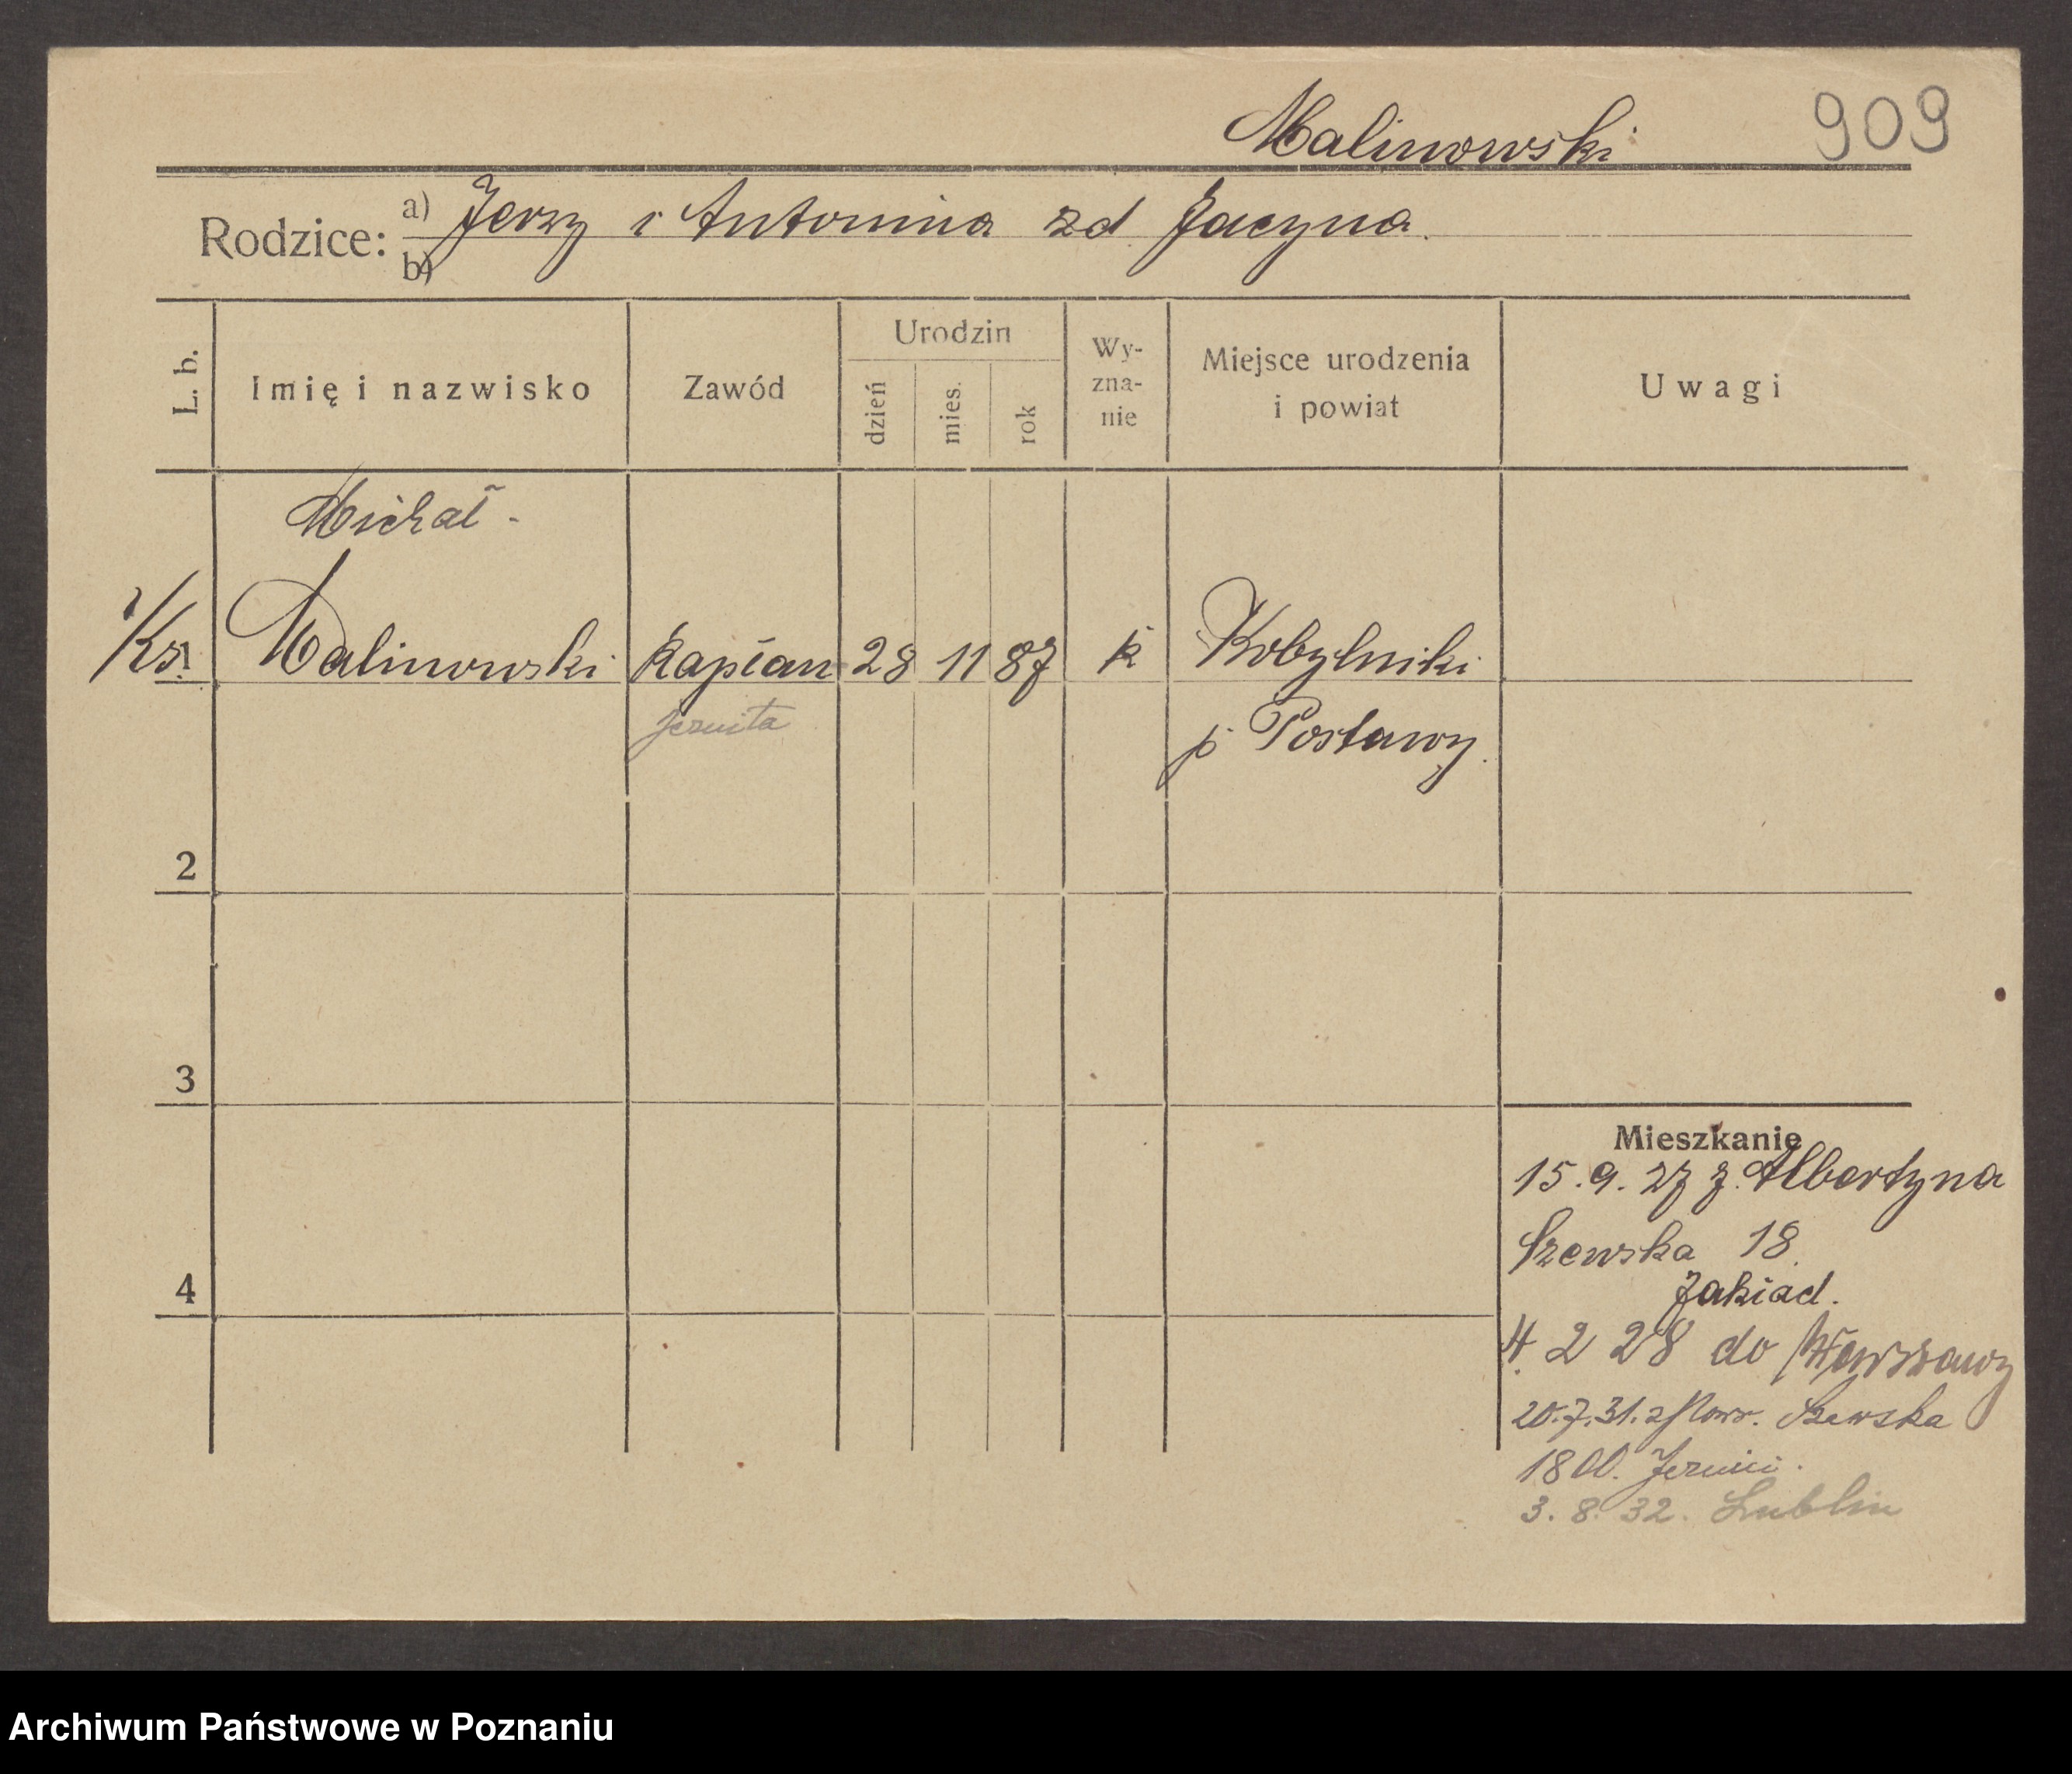 Malinowski 909
Rodzice: a) Jerzy i Antonina zd Jacyna.
b)
L. b. Imię i nazwisko Zawód Urodzin dzień mies. rok Wy-zna-nie Miejsce urodzenia i powiat Uwagi
Michał -
1/Ks. Malinowski kapłan 28 11 87 k Kobylniki
jezuita p Postawy.
2
3
Mieszkanie
15.9.27 z. Albertyna
Szewska 18.
4
Zakład.
4. 2 28 do Warszawy
20.7.31. z Szewska
18 Jezuici.
3. 8. 32. Lublin
Archiwum Państwowe w Poznaniu